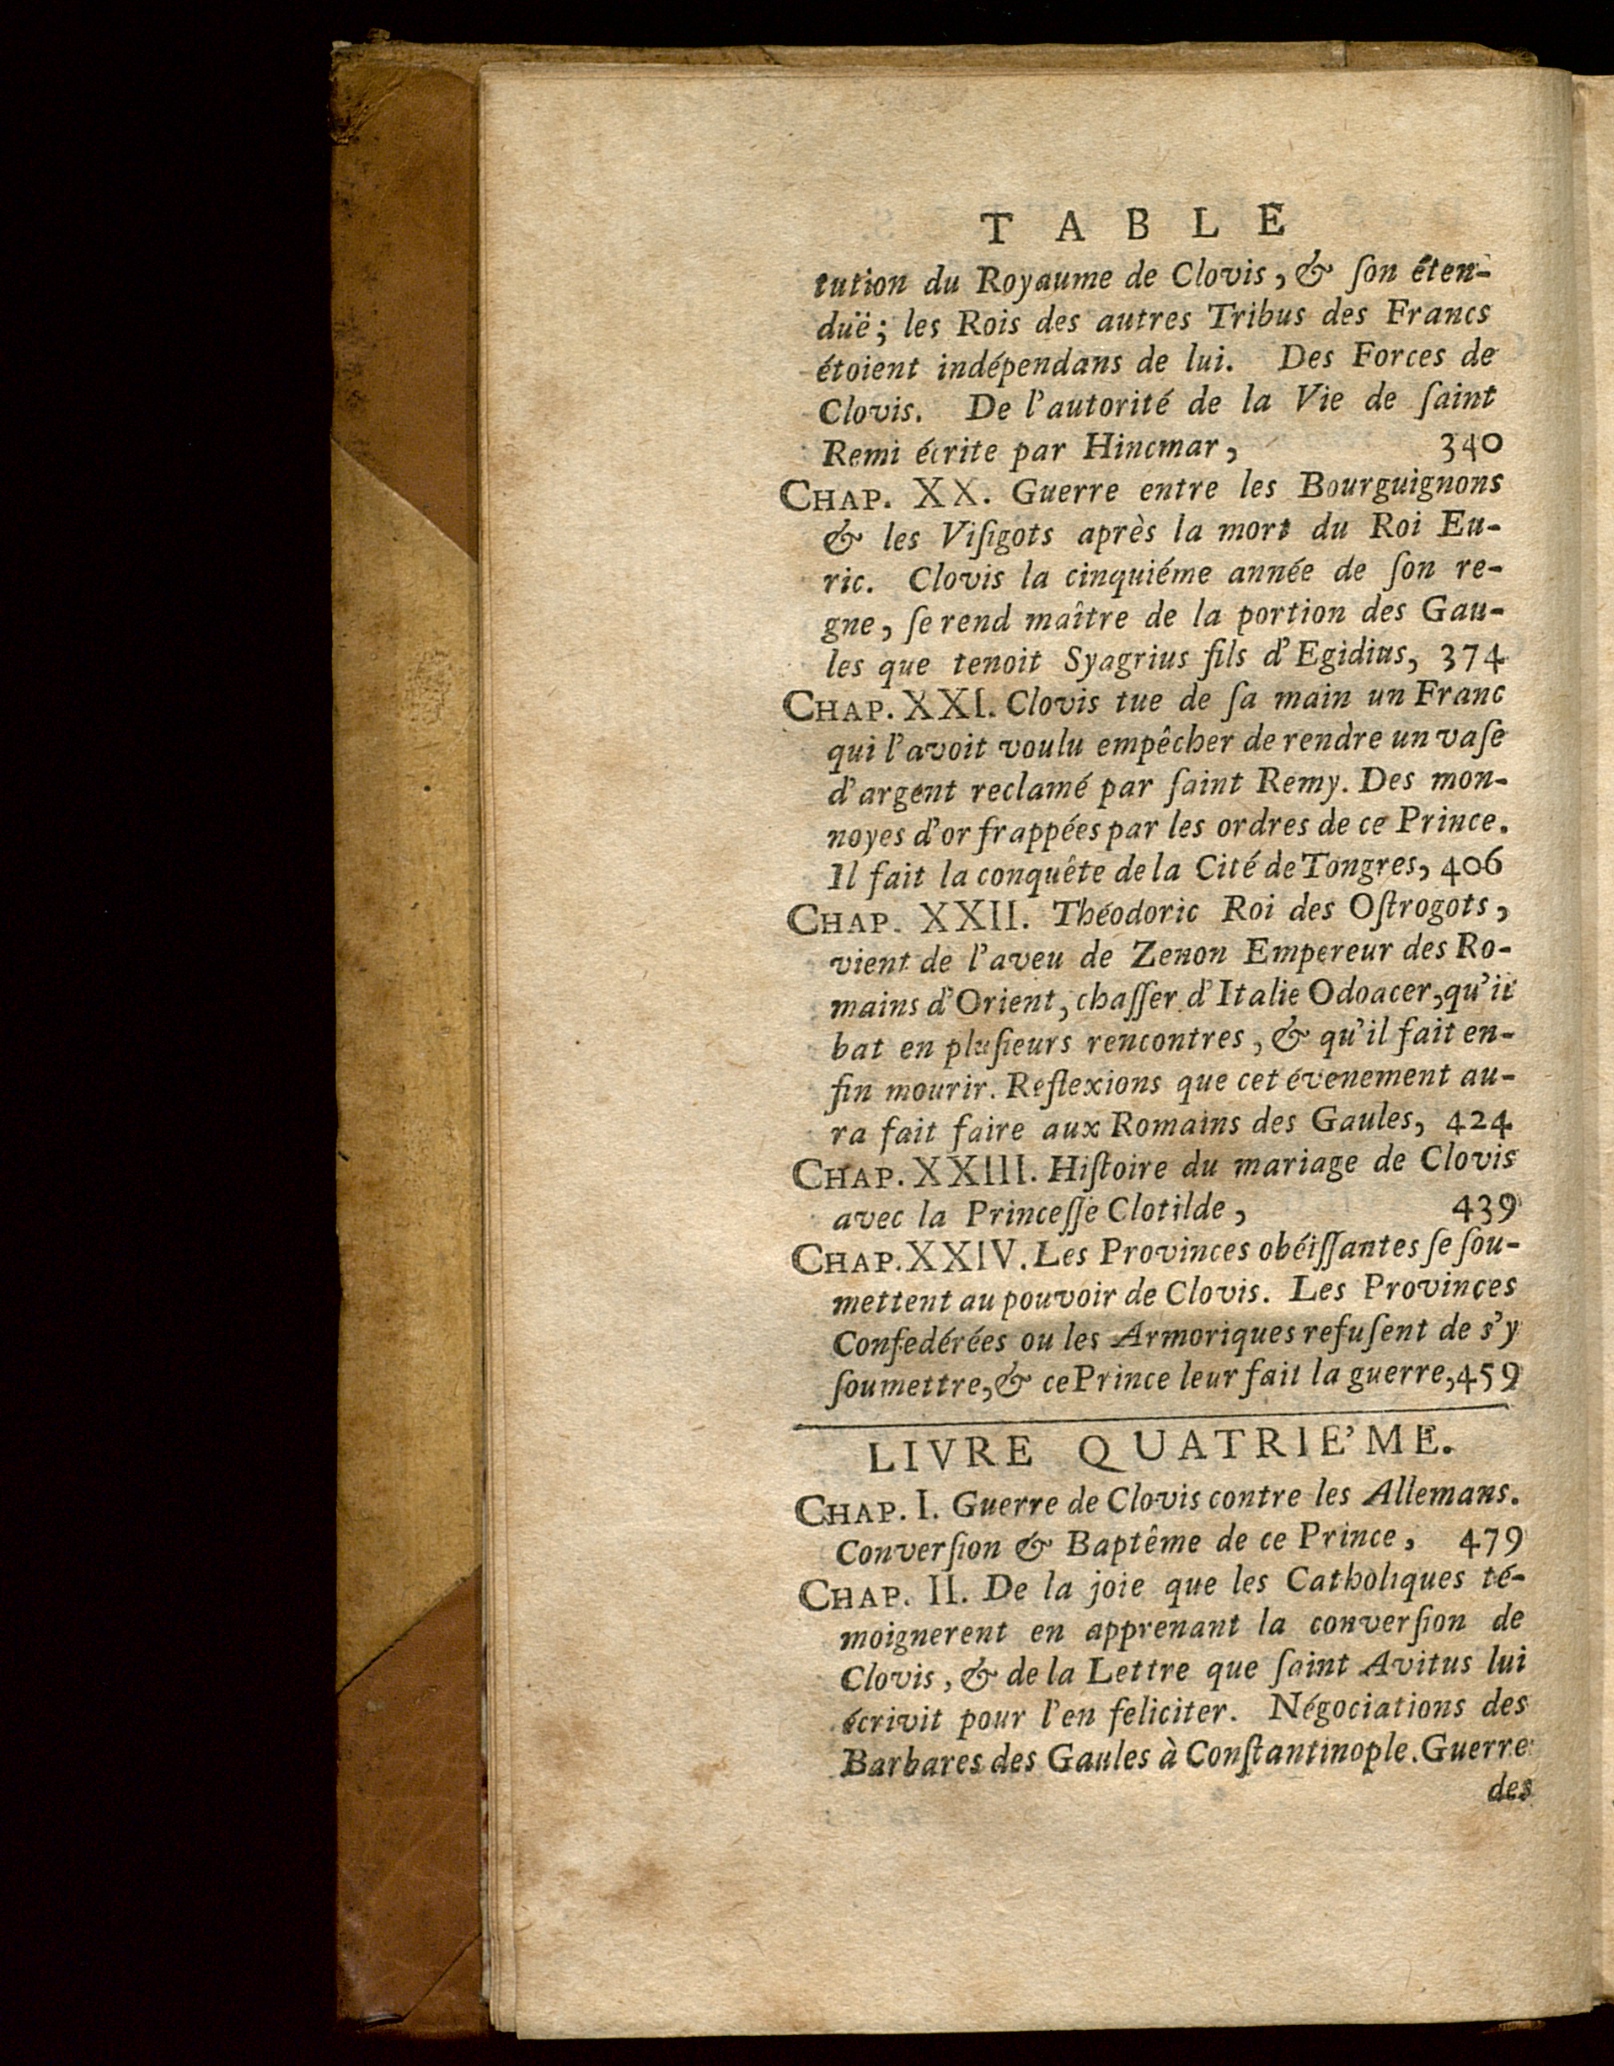 TABLE
tution du Royaume de Clovis, & ſon éten-
duë; les Rois des autres Tribus des Francs
étoient indépendans de lui. Des Forces de
Clovis. De l'autorité de la Vie de ſaint
Remi écrite par Hincmar, 340
CHAP. XX. Guerre entre les Bourguignons
& les Viſigots après la mort du Roi Eu-
ric. Clovis la cinquiéme année de ſon re-
gne, ſe rend maître de la portion des Gau-
les que tenoit Syagrius fils d'Egidius, 374
CHAP. XXI. Clovis tue de ſa main un Franc
qui l'avoit voulu empêcher de rendre un vaſe
d'argent reclamé par ſaint Remy. Des mon-
noyes d'or frappées par les ordres de ce Prince.
Il fait la conquête de la Cité de Tongres, 406
CHAP. XXII. Théodoric Roi des Oſtrogots,
vient de l'aveu de Zenon Empereur des Ro-
mains d'Orient, chaſſer d'Italie Odoacer, qu'il
bat en pluſieurs rencontres, & qu'il fait en-
fin mourir. Reflexions que cet évenement au-
ra fait faire aux Romains des Gaules, 424
CHAP. XXIII. Hiſtoire du mariage de Clovis
avec la Princeſſe Clotilde, 439
CHAP. XXIV. Les Provinces obéiſſantes ſe ſou-
mettent au pouvoir de Clovis. Les Provinces
Confedérées ou les Armoriques refuſent de s'y
ſoumettre, & ce Prince leur fait la guerre, 459
LIVRE QUATRIE'ME.
CHAP. I. Guerre de Clovis contre les Allemans.
Converſion & Baptême de ce Prince, 479
CHAP. II. De la joie que les Catholiques té-
moignerent en apprenant la converſion de
Clovis, & de la Lettre que ſaint Avitus lui
écrivit pour l'en feliciter. Négociations des
Barbares des Gaules à Conſtantinople. Guerre
des